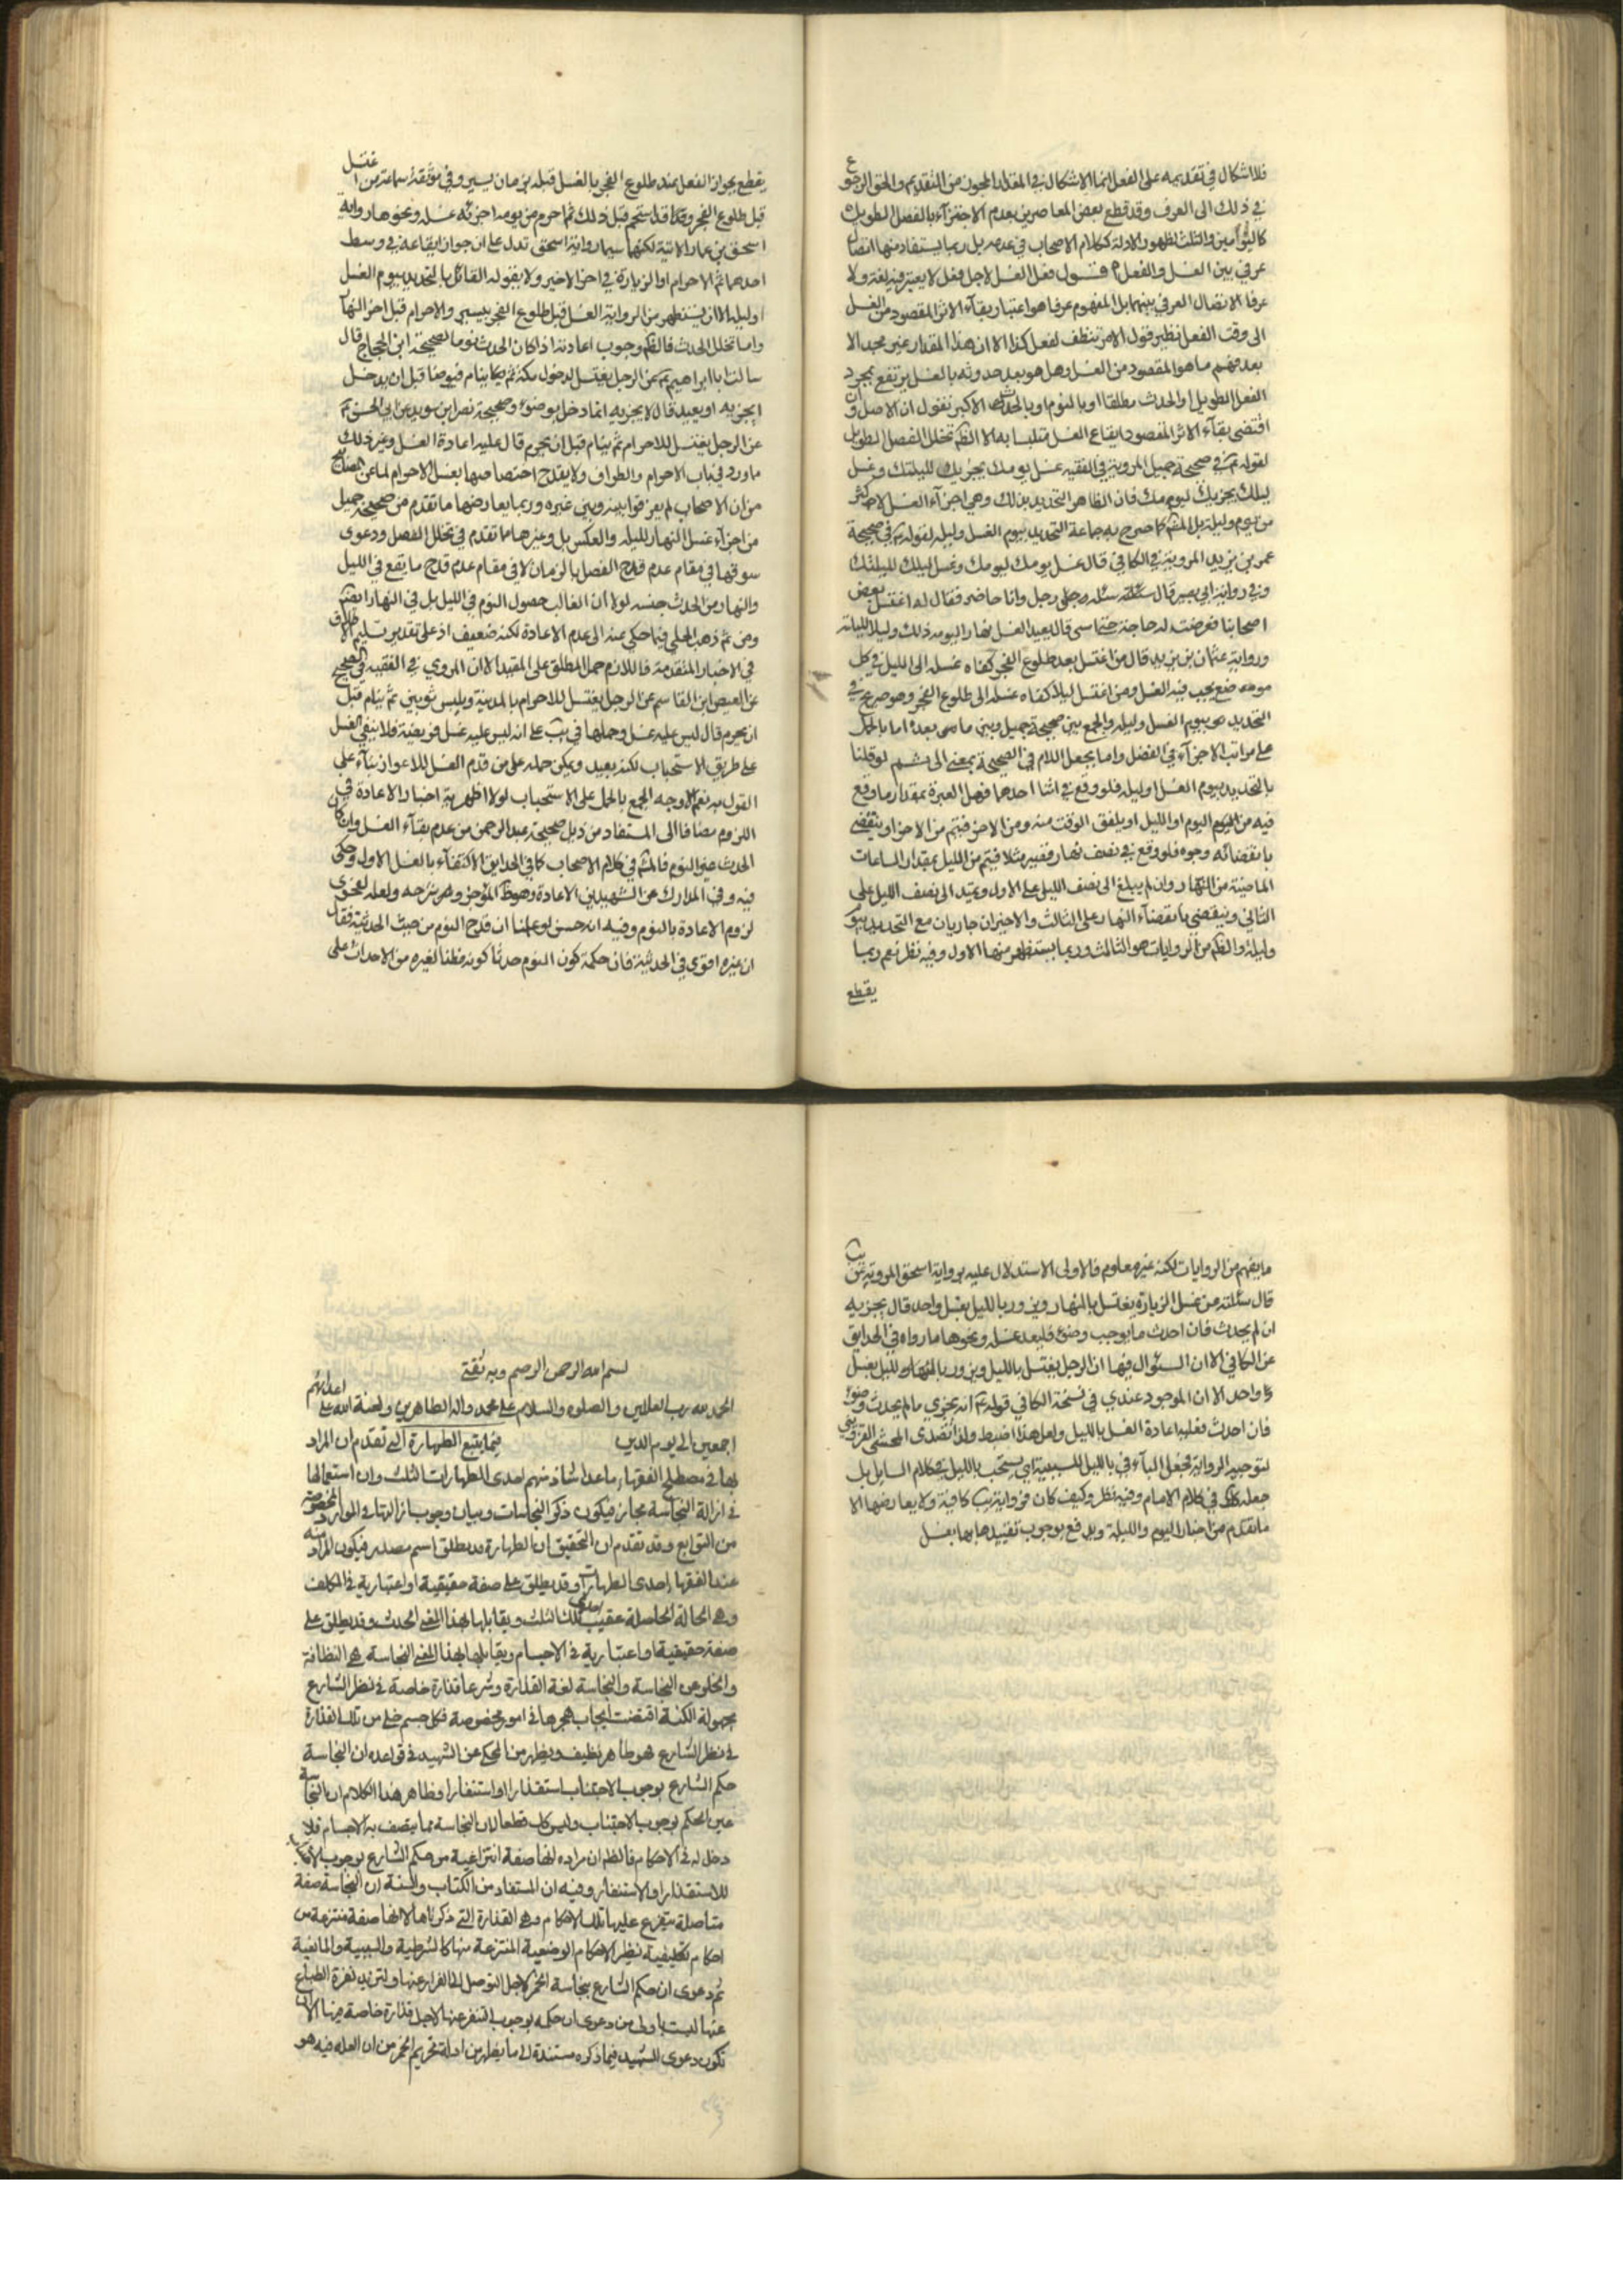 فلا اشكال في تقديمه على الفعل انما الاشكال في المقدار المجوز من التقديم والحق الرجوع
في ذلك الى العرف وقد قطع بعض المعاصرين بعدم الاجتزآء بالفصل الطويل
كاليومين والثلث لظهور الادلة ككلام الاصحاب في عدمه بل ربما يستفاد منها اتصال
عرفي بين الغسل والفعل فنقول فعل الغسل لاجل فعل لا يعتبر فيه لغة ولا
عرفا الاتصال العرفي بينهما بل المفهوم عرفا هو اعتبار بقآء الاثر المقصود من الغسل
الى وقت الفعل نظير قول الامر تنظف لفعل كذا الا ان هذا المقدار غير مجد الا
بعد فهم ما هو المقصود من الغسل وهل هو بعد حدوثه بالغسل يرتفع بمجرد
الفصل الطويل او الحدث مطلقا او بالنوم او بالحدث الاكبر فنقول ان الاصل وان
اقتضى بقآء الاثر المقصود ايقاع الغسل متلبسا به الا انه لا يقدح تخلل الفصل الطويل
لقوله ع في صحيحة جميل المروية في الفقيه غسل يومك يجزيك لليلتك وغسل
ليلتك يجزيك ليومك فان الظاهر التحديد بذلك وهي اجزآء الغسل لاكثر
من يوم وليلة بل المشهور كما صرح به جماعة التحديد بيوم الغسل وليله لقوله ع في صحيحة
عمر بن يزيد المروية في الكافي قال غسل يومك ليومك وغسل ليلك لليلتك
وفي رواية ابي بصير قال سئلته سئله رجل وانا حاضر فقال له اغتسل بعض
اصحابنا فعرضت له حاجة حتى امسى قال يعيد الغسل نهارا ليومه ذلك وليلا لليلته
ورواية عثمان بن يزيد قال من اغتسل بعد طلوع الفجر كفاه غسله الى الليل في كل
موضع يجب فيه الغسل ومن اغتسل ليلا كفاه غسله الى طلوع الفجر وهو صريح في
التحديد بيوم الغسل وليله والجمع بين صحيحة جميل وبين ما بعده اما بالحمل
على مراتب الاجزآء في الفضل واما بجعل اللام في الصحيحة بمعنى الى ثم لو قلنا
بالتحديد بيوم الغسل او ليله فلو وقع في اثنا احدهما فهل العبرة بمقدار ما وقع
فيه من اليوم او الليل او يلفق الوقت منه ومن الاخر فيتم من الاخر او ينقضي
بانقضائه وجوه فلو وقع في نصف نهار قصير مثلا فيتم من الليل بمقدار الساعات
الماضية من النهار وان لم يبلغ الى نصف الليل على الاول ويمتد الى نصف الليل على
الثاني وينقضي بانقضآء النهار على الثالث والاخيران جاريان مع التحديد بيوم
وليلة والظاهر من الروايات هو الثالث وربما يستظهر منها الاول وفيه نظر نعم ربما
يقطع
يقطع بجواز الفعل عند طلوع الفجر بالغسل قبله بزمان يسير وفي موثقة سماعة من اغتسل
قبل طلوع الفجر وقد استحم قبل ذلك ثم احرم من يومه اجزئه غسله ونحوها رواية
اسحق بن عمار الاتية لكنهما سيما رواية اسحق تدل على ان جواز ايقاعه في وسط
احدهما ثم الاحرام او الزيارة في اخر الاخير ولا يقوله القائل بالتحديد بيوم الغسل
او ليله الا ان يستظهر من الرواية الغسل قبل طلوع الفجر بيسير والاحرام قبل اخر النهار
واما تخلل الحدث فالظاهر وجوب اعادته اذا كان الحدث نوما لصحيحة ابن الحجاج قال
سالت ابا ابراهيم ع عن الرجل يغتسل لدخول مكة ثم ينام فيتوضا قبل ان يدخل
ايجزيه او يعيد قال لا يجزيه انما دخل بوضوء وصحيحة نصر بن سويد عن ابي الحسن ع
عن الرجل يغتسل للاحرام ثم ينام قبل ان يحرم قال عليه اعادة الغسل وغير ذلك
ما ورد في باب الاحرام والطواف ولا يقدح اختصاصها بغسل الاحرام لما عن المصابيح
من ان الاصحاب لم يفرقوا بينه وبين غيره وربما يعارضها ما تقدم من صحيحة جميل
من اجزآء غسل النهار لليله والعكس بل وغيرها ما تقدم في تخلل الفصل ودعوى
سوقها في مقام عدم قدح الفصل بالزمان لا في مقام عدم قدح ما يقع في الليل
والنهار من الحدث حسنه لولا ان الغالب حصول النوم في الليل بل في النهار ايضا
ومن ثم ذهب الحلي فيما حكي عنه الى عدم الاعادة لكنه ضعيف اذ على تقدير تسليم الاطلاق
في الاخبار المتقدمة فاللازم حمل المطلق على المقيد الا ان المروي في الفقيه في الصحيح
عن العيص ابن القاسم عن الرجل يغتسل للاحرام بالمدينة ويلبس ثوبين ثم ينام قبل
ان يحرم قال ليس عليه غسل وحملها في يب على انه ليس عليه غسل فريضة فلا ينفي الغسل
على طريق الاستحباب لكنه بعيد ويمكن حمله على من قدم الغسل للاعواز بنآء على
القول به نعم الاوجه الجمع بالحمل على الاستحباب لولا اظهرية اخبار الاعادة في
اللزوم مضافا الى المستفاد من ذيل صحيحة عبد الرحمن من عدم بقآء الغسل وان كان
الحدث غير النوم فالمشهور في كلام الاصحاب كما في الحدايق الاكتفآء بالغسل الاول وحكى
فيه وفي المدارك عن الشهيدين الاعادة وهو ظاهر الموجز وشرحه ولعله لفحوى
لزوم الاعادة بالنوم وفيه انه حسن لو علمنا ان قدح النوم من حيث الحدثية فقط
ان غيره اقوى في الحدثية فان حكمة كون النوم حدثا كونه مظنا لغيره من الاحداث على
ما يفهم من الروايات لكنه غير معلوم فالاولى الاستدلال عليه برواية اسحق المروية في يب
قال سئلته عن غسل الزيارة يغتسل بالنهار ويزور بالليل بغسل واحد قال يجزيه
ان لم يحدث فان احدث ما يوجب وضوء فليعد غسله ونحوها ما رواه في الحدايق
عن الكافي الا ان السئوال فيها ان الرجل يغتسل بالليل ويزور بالنهار بغسل
واحد الا ان الموجود عندي في نسخة الكافي قوله ع انه يجزي ما لم يحدث وضوء
فان احدث فعليه اعادة الغسل بالليل ولعل هذا اضبط ولذا تصدى المحشى القزويني
لتوجيه الرواية فجعل البآء في بالليل للسببية اي يستحب بالليل في كلام السايل بل
جعله كذلك في كلام الامام وفيه نظر وكيف كان فرواية يب كافية ولا يعارضها الا
ما تقدم من اخبار اليوم والليلة ويدفع بوجوب تقييدها بما بغسل
بسم الله الرحمن الرحيم وبه ثقتي
الحمد لله رب العالمين والصلوة والسلام على محمد واله الطاهرين ولعنة الله على اعدائهم
اجمعين الى يوم الدين فيما يتبع الطهارة التي تقدم ان المراد
بها في مصطلح الفقهاء ما عدا شاذ منهم احدى الطهارات الثلث وان استعمالها
في ازالة النجاسة مجاز فيكون ذكر النجاسات وبيان وجوب ازالتها في الموارد المخصوصة
من التوابع وقد تقدم ان التحقيق ان الطهارة قد يطلق اسم مصدر فيكون المراد منه
عند الفقهاء احدى الطهارات وقد يطلق على صفة حقيقية او اعتبارية في المكلف
وهي الحالة الحاصلة عقيب احدى تلك الثلث ويقابلها بهذا المعنى الحدث وقد يطلق على
صفة حقيقية او اعتبارية في الاجسام ويقابلها بهذا المعنى النجاسة هي النظافة
والخلو عن النجاسة والنجاسة لغة القذارة وشرعا قذارة خاصة في نظر الشارع
مجهولة الكنه اقتضت ايجاب هجرها في امور مخصوصة فكل جسم خلي من تلك القذارة
في نظر الشارع فهو طاهر نظيف ويظهر من المحكي عن الشهيد في قواعده ان النجاسة
حكم الشارع بوجوب الاجتناب استقذارا او استنفارا وظاهر هذا الكلام ان النجاسة
عين الحكم بوجوب الاجتناب وليس كك قطعا لان النجاسة مما يتصف به الاجسام فلا
دخل له في الاحكام فالظاهر ان مراده انها صفة انتزاعية من حكم الشارع بوجوب الاجتناب
للاستقذار او الاستنفار وفيه ان المستفاد من الكتاب والسنة ان النجاسة صفة
متاصلة يتفرع عليها تلك الاحكام وهي القذارة التي ذكرناها لا انها صفة منتزعة من
احكام تكليفية نظير الاحكام الوضعية المنتزعة منها كالشرطية والسببية والمانعية
ثم دعوى ان حكم الشارع بنجاسة الخمر لاجل التوصل الى الفرار عنها وليزيد نفرة الطباع
عنها ليست باولى من دعوى ان حكمه بوجوب التنفر عنها لاجل قذارة خاصة فيها الا ان
تكون دعوى الشهيد فيما ذكره مستندة الى ما يظهر من ادلة تحريم الخمر من ان العلة فيه هو